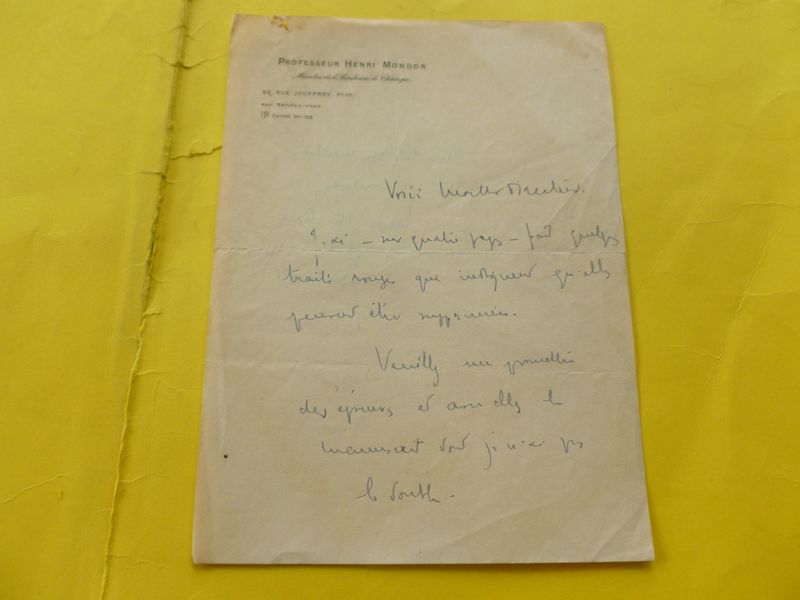 PROFESSEUR HENRI MONDOR
Membre de l'Académie de Chirurgie
RUE JOUFFROY, XVIIe
sur Rendez-vous
Voici
J'ai - sur quatre pages - fait quelques
traits rouges qui indiquent qu'elles
peuvent être supprimées.
Veuillez me
des épreuves et avec elles le
manuscrit dont je n'ai pas
le double.